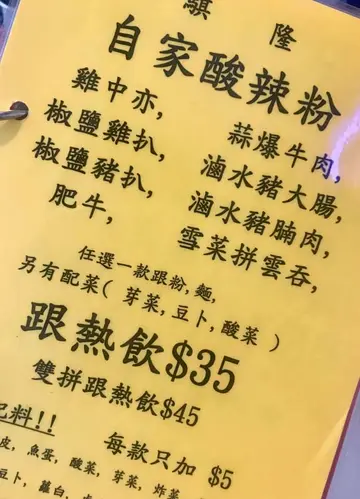 騏隆
自家酸辣粉
雞中亦, 蒜爆牛肉,
椒鹽雞扒, 滷水豬大腸,
椒鹽豬扒, 滷水豬腩肉,
肥牛, 雪菜拼雲吞,
任選一款跟粉, 麵,
另有配菜( 芽菜, 豆卜, 酸菜 )
跟熱飲$35
雙拼跟熱飲$45
料!! 每款只加 $5
皮, 魚蛋, 酸菜, 芽菜, 炸菜
豆卜, 蘿白,